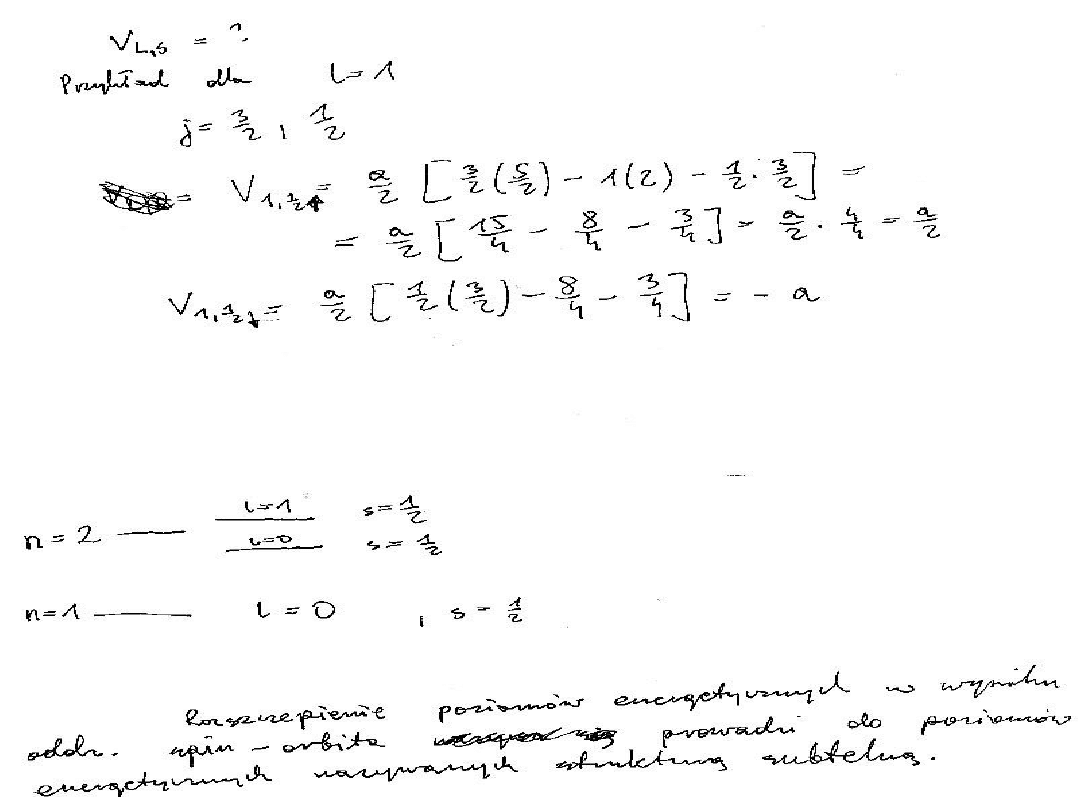 V_{L,S} = ?
Przykład dla l = 1
j = 3/2 , 1/2
= V_{1,1/2↑} = a/2 [ 3/2 (5/2) - 1(2) - 1/2 · 3/2 ] =
= a/2 [ 15/4 - 8/4 - 3/4 ] = a/2 · 4/4 = a/2
V_{1,1/2↓} = a/2 [ 1/2 (3/2) - 8/4 - 3/4 ] = - a
l=1 s = 1/2
n = 2
l=0 s = 1/2
n = 1 l = 0 , s = 1/2
Rozszczepienie poziomów energetycznych w wyniku
oddz. spin - orbita prowadzi do poziomów
energetycznych nazywanych strukturą subtelną.